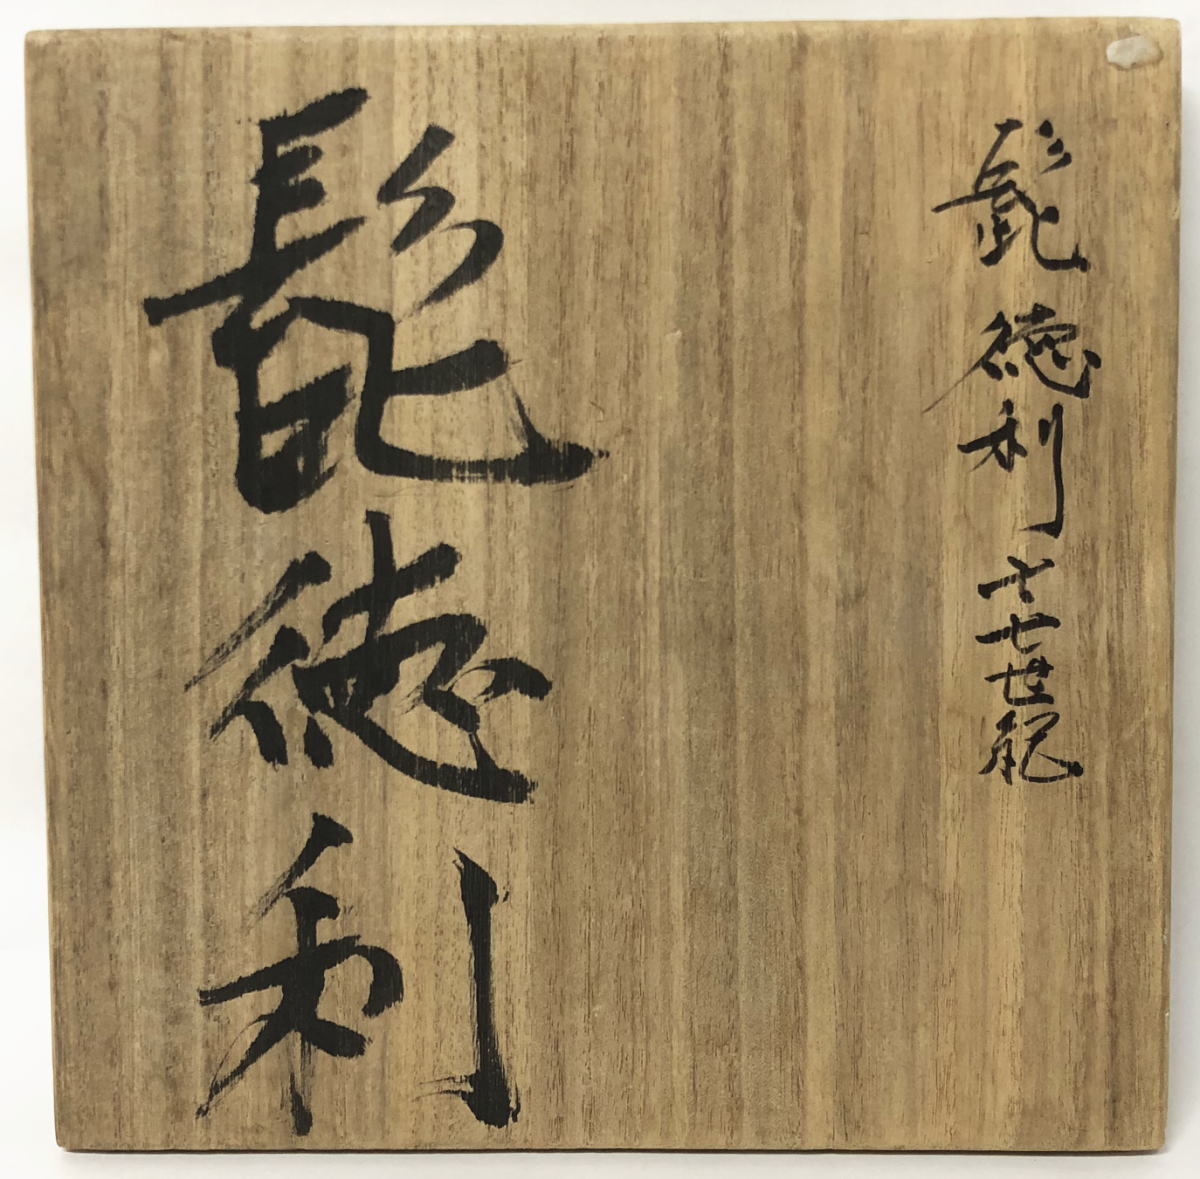 髭徳利 十七世紀
髭徳利